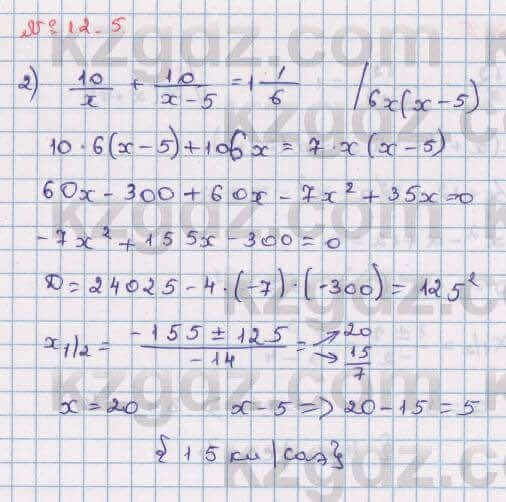 № 12-5
2) 10/x + 10/(x-5) = 1 1/6 | 6x(x-5)
10·6(x-5)+106x = 7·x(x-5)
60x-300+60x-7x²+35x=0
-7x²+155x-300=0
D=24025-4·(-7)·(-300)=125²
x₁/₂ = (-155±125)/(-14) = → 20 → 15/7
x=20 x-5 => 20-15=5
{15 км/сағ}
kzgdz.com